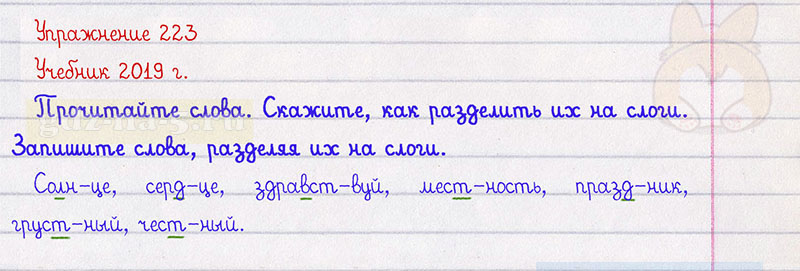 Упражнение 223
Учебник 2019 г.
Прочитайте слова. Скажите, как разделить их на слоги.
Запишите слова, разделяя их на слоги.
Солн-це, серд-це, здравст-вуй, мест-ность, празд-ник,
груст-ный, чест-ный.